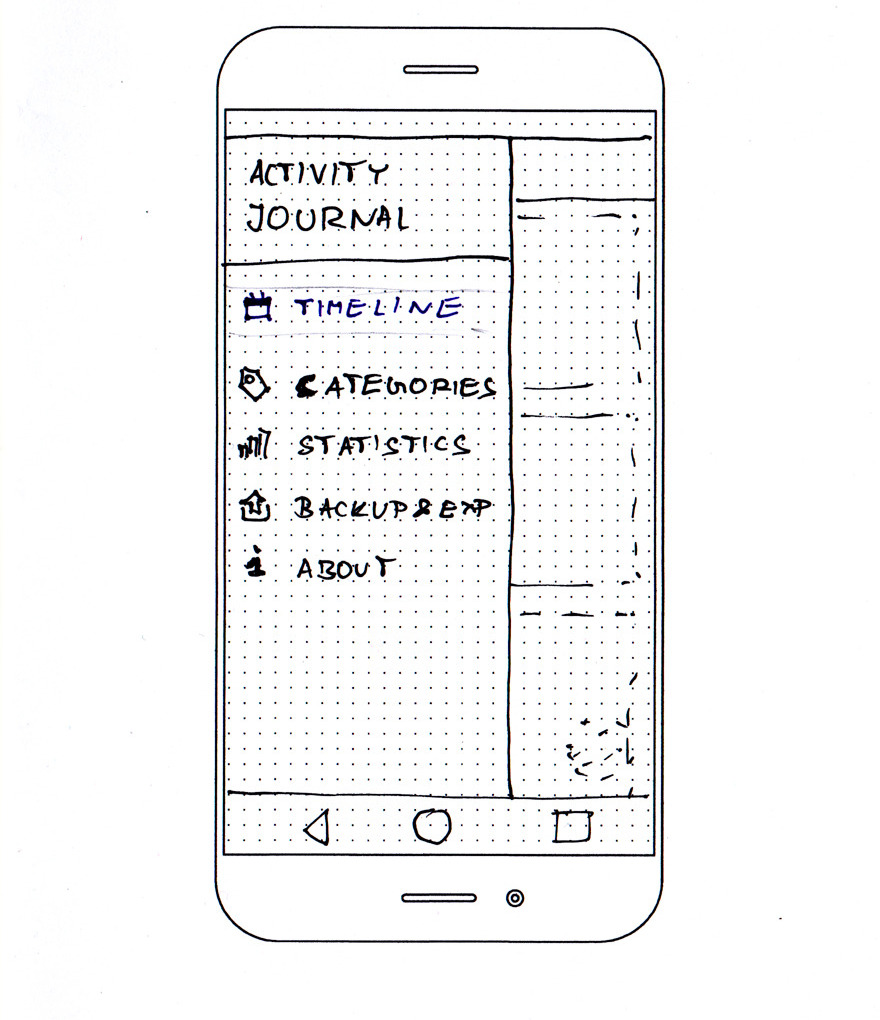 ACTIVITY
JOURNAL
TIMELINE
CATEGORIES
STATISTICS
BACKUP & EXP
ABOUT